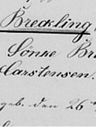 Breckling
Sönke Br
Carstensen.
geb. den 26